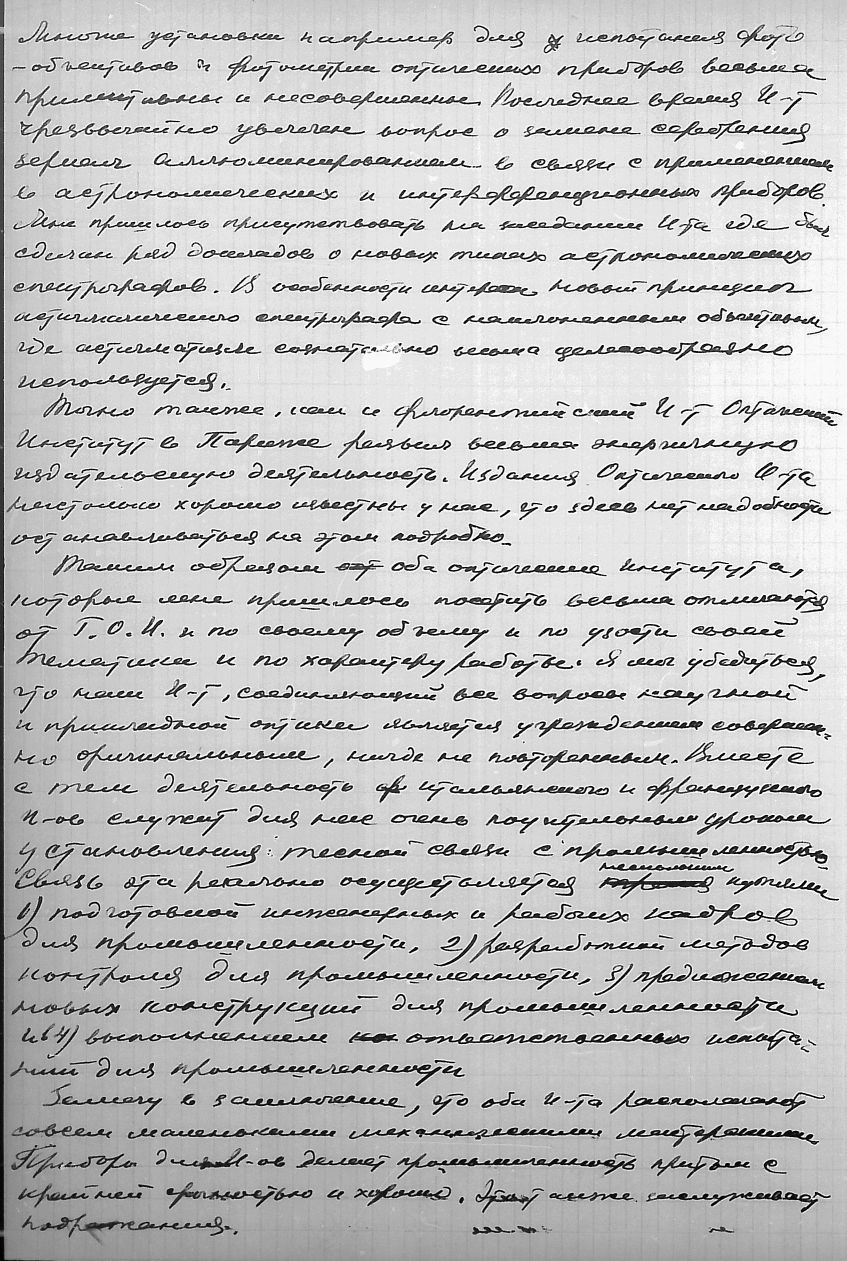 Многие установки например для испытания фото
-объективов и фотометрии оптических приборов весьма
примитивны и несовершенны. Последнее время И-т
чрезвычайно увлечен вопрос о замене серебрения
зеркал аллюминированием в связи с применением
в астрономических и интерференционных приборов.
Мне пришлось присутствовать на заседании И-та где был
сделан ряд докладов о новых типах астрономических
спектрографов. В особенности интересен новый принцип
астигматического спектрографа с наклоненным объективом,
где астигматизм сознательно весьма целесообразно
используется.
Точно также, как и флорентийский И-т Оптический
Институт в Париже развил весьма энергичную
издательскую деятельность. Издания Оптического И-та
настолько хорошо известны у нас, что здесь нет надобности
останавливаться на этом подробно.
Таким образом оба оптические института,
которые мне пришлось посетить весьма отличаются
от Г.О.И. и по своему объему и по узости своей
тематики и по характеру работы. Я мог убедиться,
что наш И-т, соединяющий все вопросы научной
и прикладной оптики является учреждением совершен-
но оригинальным, нигде не повторенным. Вместе
с тем деятельность итальянского и французского
И-ов служит для нас очень поучительным уроком
установления тесной связи с промышленностью.
Связь эта реально осуществляется несколькими путями
1) подготовкой инженерных и рабочих кадров
для промышленности, 2) разработкой методов
контроля для промышленности, 3) предложением
новых конструкций для промышленности
и 4) выполнением ответственных испыта-
ний для промышленности
Замечу в заключение, что оба И-та располагают
совсем маленькими механическими мастерскими
Приборы для И-ов делает промышленность притом с
крайней срочностью и хорошо. Это также заслуживает
подражания.